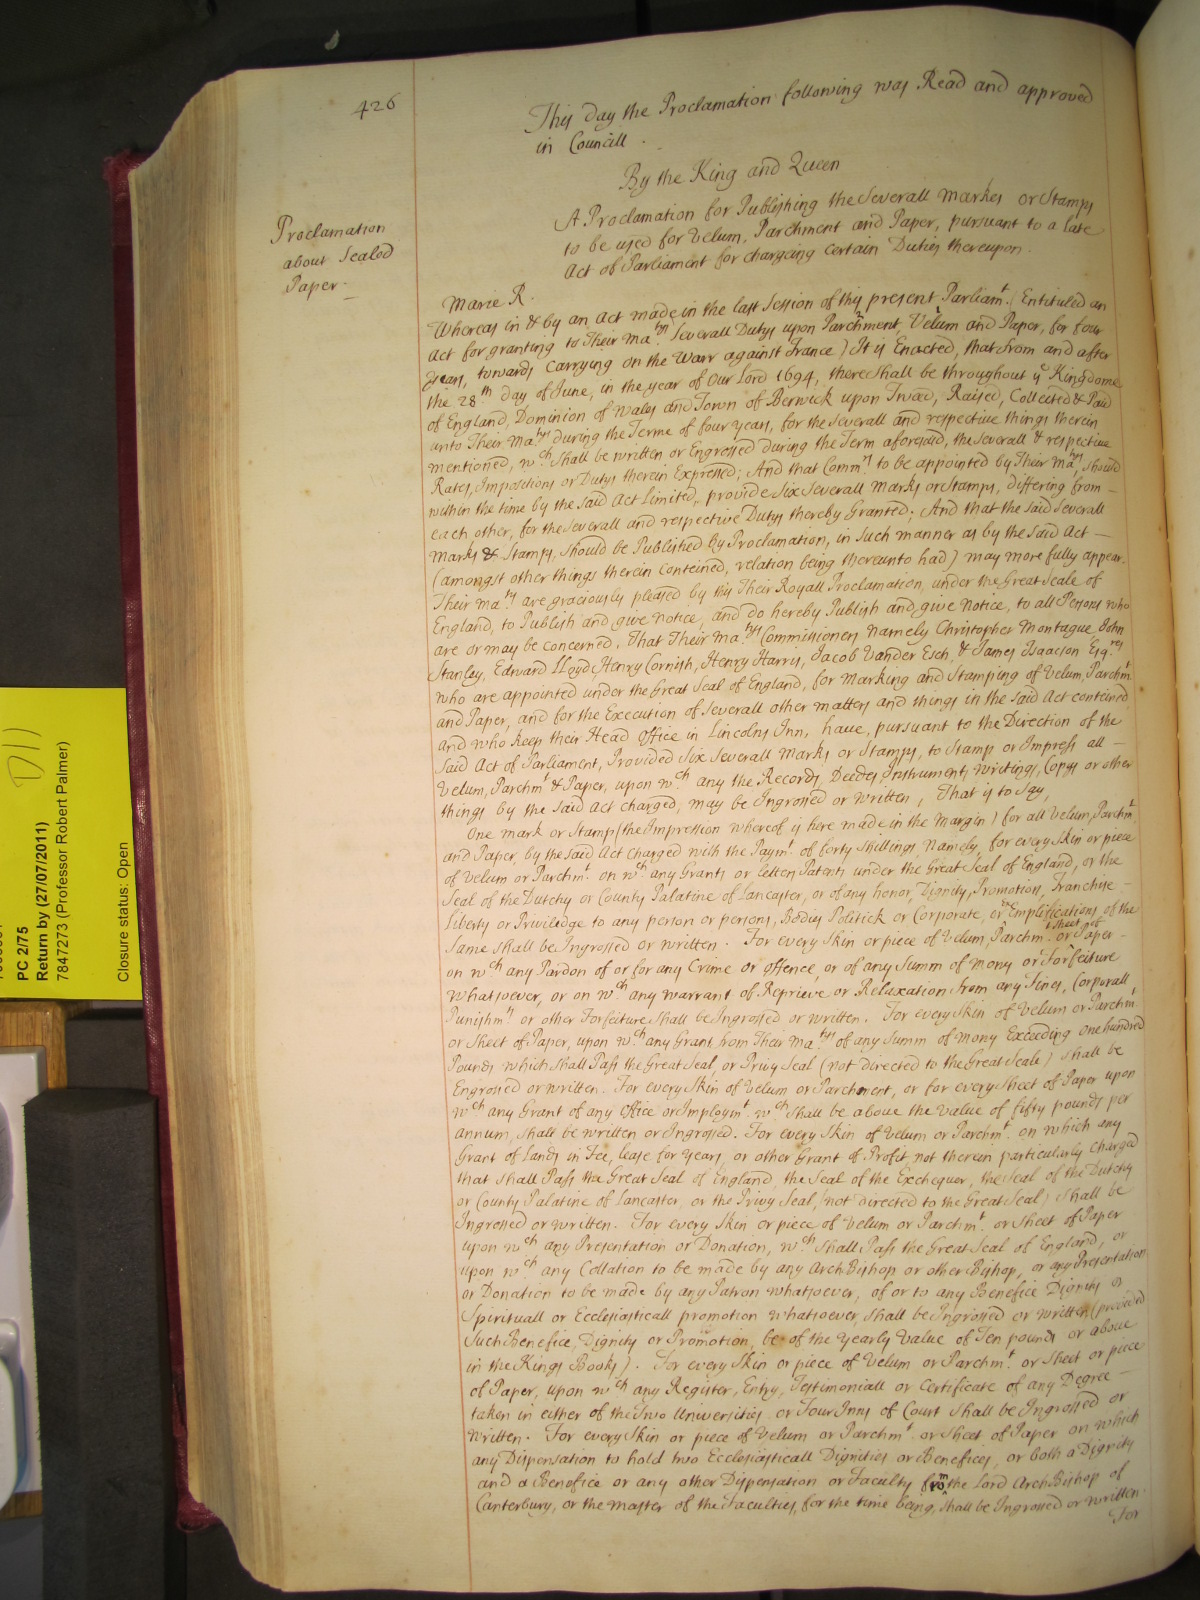 426
This day the Proclamation following was Read and approved
in Councill.
By the King and Queen
A Proclamation for Publishing the severall markes or Stamps
to be used for Velum, Parchment and Paper, pursuant to a late
Act of Parliament for chargeing certain Duties thereupon.
Proclamation
about Sealed
Paper.
Marie R.
Whereas in & by an Act made in the last Session of this present Parliamt. (Entituled an
Act for granting to Their Matys severall Dutys upon Parchment, Velum and Paper, for four
years, towards carrying on the Warr against France) It is Enacted, that from and after
the 28th day of June, in the year of Our Lord 1694, there shall be throughout ye Kingdome
of England, Dominion of Wales and Town of Berwick upon Twed, Raised, Collected & Paid
unto Their Matys during the Terme of four years, for the severall and respective things therein
mentioned, wch shall be written or Engrossed during the Term aforesaid, the severall & respective
Rates, Impositions or Dutys therein Expressed; And that Commrs to be appointed by Their Matys, should
within the time by the said Act Limited, provide six severall marks or Stamps, differing from
each other, for the severall and respective Dutys thereby Granted; And that the said severall
marks & Stamps, should be Published by Proclamation, in such manner as by the said Act
(amongst other things therein conteined, relation being thereunto had) may more fully appear.
Their Matys are graciously pleased by this Their Royall Proclamation, under the Great Seale of
England, to Publish and give notice, and do hereby Publish and give Notice, to all Persons who
are or may be concerned, That Their Matys Commissioners namely Christopher Montague, John
Stanley, Edward Lloyd, Henry Cornish, Henry Harris, Jacob Vander Esch, & James Isaacson Esqres
who are appointed under the Great Seal of England, for Marking and Stamping of Velum, Parchmt.
and Paper, and for the Execution of severall other matters and things in the said Act conteined,
and who keep their Head Office in Lincolns Inn, have, pursuant to the Direction of the
said Act of Parliament, Provided six severall marks or Stamps, to Stamp or Impress all
Velum, Parchmt & Paper, upon wch any the Records, Deedes, Instruments, writings, Copys or other
things by the said Act charged, may be Ingrossed or written, That is to say,
One mark or Stamp (the Impression whereof is here made in the Margin) for all Velum, Parchmt,
and Paper, by the said Act charged with the Paymt. of forty shillings, Namely, for every Skin or piece
of Velum or Parchmt. on wch any Grants or Letters Patents under the Great Seal of England, or the
Seal of the Dutchy or County Palatine of Lancaster, or of any honor, Dignity, Promotion, Franchise
Liberty or Priviledge to any person or persons, Bodies Politick or Corporate, or Exemplifications of the
same shall be Ingrossed or written. For every Skin or piece of Velum, Parchmt. or sheet of Paper
on wch any Pardon of or for any Crime or Offence, or of any Summ of mony or Forfeiture
whatsoever, or on wch any warrant of Reprieve or Relaxation from any Fines, Corporall
Punishmts or other Forfeiture shall be Ingrossed or written. For every Skin of Velum or Parchmt.
or Sheet of Paper, upon wch any Grant from Their Matys of any Summ of mony Exceeding one hundred
Pounds which shall Pass the Great Seal, or Privy Seal (not directed to the Great Seale) shall be
Engrossed or written. For every Skin of Velum or Parchment, or for every Sheet of Paper upon
wch any Grant of any Office or Imploymt. wch shall be above the value of fifty pounds per
annum, shall be written or Ingrossed. For every Skin of Velum or Parchmt. on which any
Grant of Lands in Fee, lease for years, or other Grant of Profit not therein particularly charged
that shall Pass the Great Seal of England, the Seal of the Exchequer, the Seal of the Dutchy
or County Palatine of Lancaster, or the Privy Seal, (not directed to the Great Seal) shall be
Ingrossed or written. For every Skin or piece of Velum or Parchmt. or Sheet of Paper
upon wch any Presentation or Donation, wch shall Pass the Great Seal of England, or
upon wch any Collation to be made by any ArchBishop or other Bishop, or any Presentation
or Donation to be made by any Patron whatsoever, of or to any Benefice Dignity or
Spirituall or Ecclesiasticall promotion whatsoever, shall be Ingrossed or written (provided
Such Benefice, Dignity or Promotion, be of the yearly Value of Ten pounds or above
in the Kings Books). For every Skin or piece of Velum or Parchmt. or Sheet or piece
of Paper, upon wch any Register, Entry, Testimoniall or Certificate of any Degree
taken in either of the Two Universities or Four Inns of Court shall be Ingrossed or
written. For every Skin or piece of Velum or Parchmt. or Sheet of Paper on which
any Dispensation to hold two Ecclesiasticall Dignities or Benefices, or both a Dignity
and a Benefice or any other Dispensation or Faculty from the Lord ArchBishop of
Canterbury, or the master of the Faculties, for the time being, shall be Ingrossed or written.
For
PC 2/75
Return by (27/07/2011)
7847273 (Professor Robert Palmer)
Closure status: Open